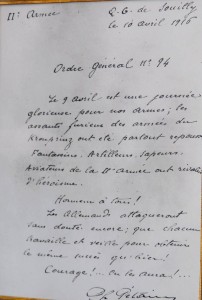 IIe Armée
Q.G. de Souilly
le 10 avril 1916
Ordre Général n° 94
Le 9 avril est une journée
glorieuse pour nos armes ; les
assauts furieux des armées du
kronprinz ont été partout repoussés
Fantassins, Artilleurs, Sapeurs,
Aviateurs de la IIe Armée ont rivalisé
d'héroïsme.
Honneur à tous !
Les Allemands attaqueront
sans doute encore ; que chacun
travaille et veille pour obtenir
le même succès qu'hier !
Courage !... On les aura !...
Ph. Pétain